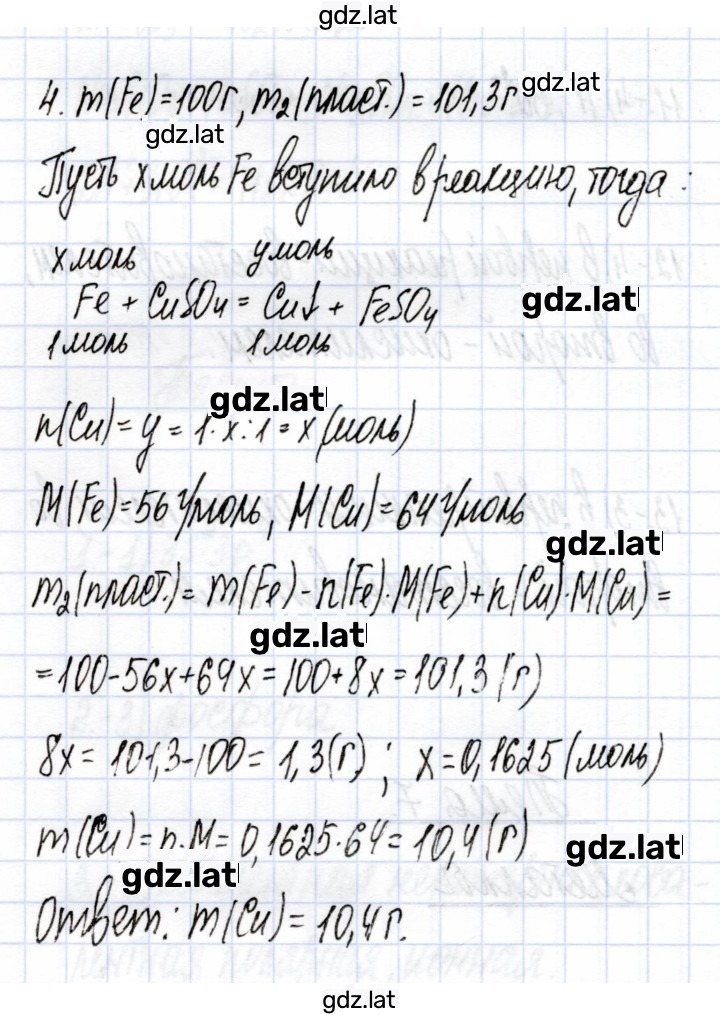 gdz.lat
4. m(Fe)=100г, m₂(пласт.)=101,3г gdz.lat
gdz.lat
Пусть x моль Fe вступило в реакцию, тогда:
x моль y моль
Fe + CuSO₄ = Cu↓ + FeSO₄ gdz.lat
1 моль 1 моль
gdz.lat
n(Cu)= y = 1·x:1 = x (моль)
M(Fe)=56 г/моль, M(Cu)=64 г/моль
gdz.lat
m₂(пласт.)= m(Fe)-n(Fe)·M(Fe)+n(Cu)·M(Cu)=
gdz.lat
=100-56x+64x=100+8x=101,3 (г)
8x= 101,3-100= 1,3(г); x=0,1625 (моль)
m(Cu)=n.M= 0,1625·64= 10,4(г) gdz.lat
gdz.lat
Ответ: m(Cu)=10,4г.
gdz.lat